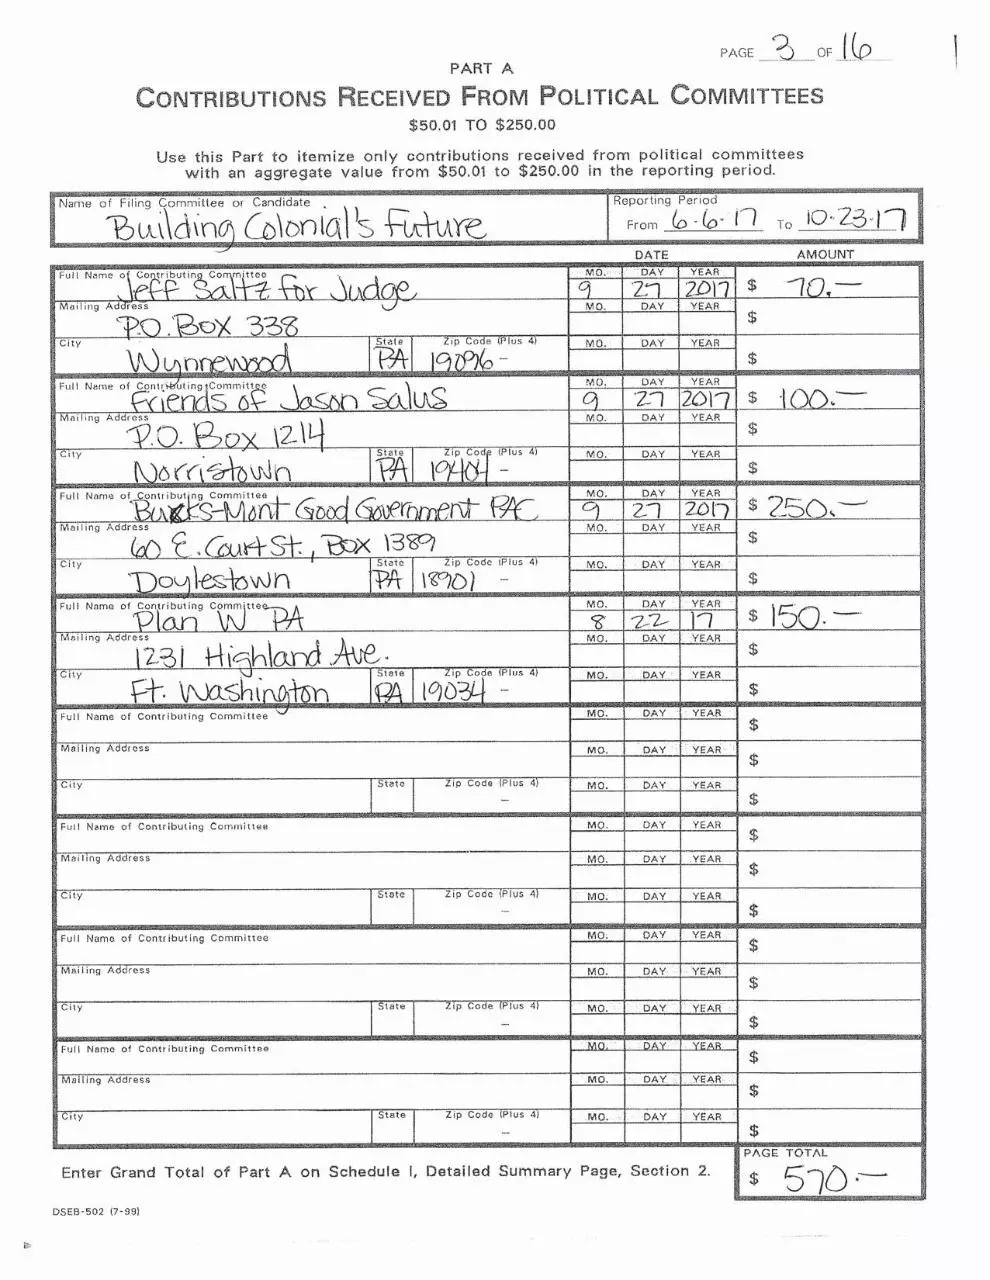 PAGE 3 OF 16
PART A
CONTRIBUTIONS RECEIVED FROM POLITICAL COMMITTEES
$50.01 TO $250.00
Use this Part to itemize only contributions received from political committees
with an aggregate value from $50.01 to $250.00 in the reporting period.
Name of Filing Committee or Candidate Reporting Period
Building Colonial's Future From 6-6-17 To 10-23-17
DATE AMOUNT
Full Name of Contributing Committee MO. DAY YEAR
Jeff Saltz for Judge 9 27 2017 $ 70.—
Mailing Address MO. DAY YEAR
P.O. Box 338 $
City State Zip Code (Plus 4) MO. DAY YEAR
Wynnewood PA 19096 - $
Full Name of Contributing Committee MO. DAY YEAR
Friends of Jason Salus 9 27 2017 $ 100.—
Mailing Address MO. DAY YEAR
P.O. Box 1214 $
City State Zip Code (Plus 4) MO. DAY YEAR
Norristown PA 19404 - $
Full Name of Contributing Committee MO. DAY YEAR
Bucks-Mont Good Government PAC 9 27 2017 $ 250.—
Mailing Address MO. DAY YEAR
60 E. Court St., Box 1389 $
City State Zip Code (Plus 4) MO. DAY YEAR
Doylestown PA 18901 - $
Full Name of Contributing Committee MO. DAY YEAR
Plan W PA 8 22 17 $ 150.—
Mailing Address MO. DAY YEAR
1231 Highland Ave. $
City State Zip Code (Plus 4) MO. DAY YEAR
Ft. Washington PA 19034 - $
Full Name of Contributing Committee MO. DAY YEAR
$
Mailing Address MO. DAY YEAR
$
City State Zip Code (Plus 4) MO. DAY YEAR
- $
Full Name of Contributing Committee MO. DAY YEAR
$
Mailing Address MO. DAY YEAR
$
City State Zip Code (Plus 4) MO. DAY YEAR
- $
Full Name of Contributing Committee MO. DAY YEAR
$
Mailing Address MO. DAY YEAR
$
City State Zip Code (Plus 4) MO. DAY YEAR
- $
Full Name of Contributing Committee MO. DAY YEAR
$
Mailing Address MO. DAY YEAR
$
City State Zip Code (Plus 4) MO. DAY YEAR
- $
PAGE TOTAL
Enter Grand Total of Part A on Schedule I, Detailed Summary Page, Section 2. $ 570.—
DSEB-502 (7-99)